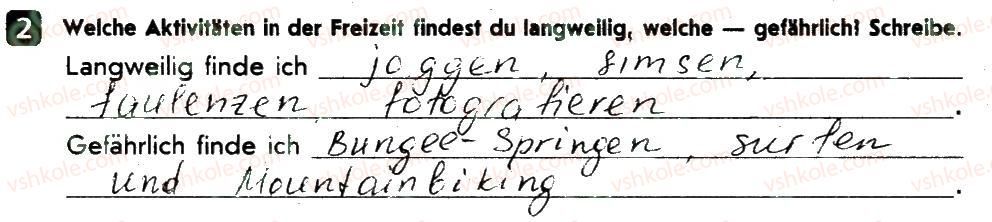 2 Welche Aktivitäten in der Freizeit findest du langweilig, welche — gefährlich? Schreibe.
Langweilig finde ich joggen, simsen,
faulenzen fotografieren.
Gefährlich finde ich Bungee-Springen, surfen
und Mountainbiking.